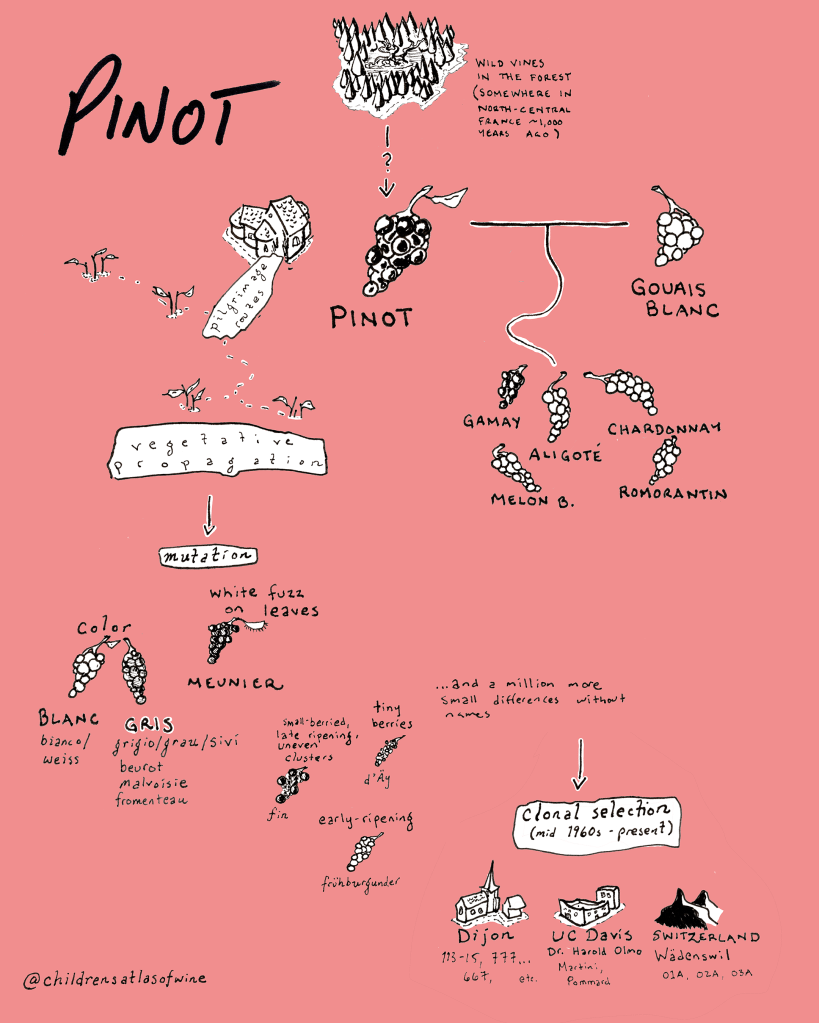 PINOT
WILD VINES
IN THE FOREST
(SOMEWHERE IN
NORTH-CENTRAL
FRANCE ~1,000
YEARS AGO)
?
pilgrimage
routes
PINOT
GOUAIS
BLANC
GAMAY
ALIGOTÉ
CHARDONNAY
MELON B.
ROMORANTIN
vegetative
propagation
mutation
white fuzz
on leaves
MEUNIER
Color
BLANC
bianco/
weiss
GRIS
grigio/grau/sivi
beurot
malvoisie
fromenteau
small-berried,
late ripening,
uneven
clusters
fin
tiny
berries
d'Äy
early-ripening
frühburgunder
...and a million more
small differences without
names
Clonal selection
(mid 1960s - present)
Dijon
113-15, 777...
667, etc.
UC Davis
Dr. Harold Olmo
Martini,
Pommard
SWITZERLAND
Wädenswil
01A, 02A, 03A
@childrensatlasofwine